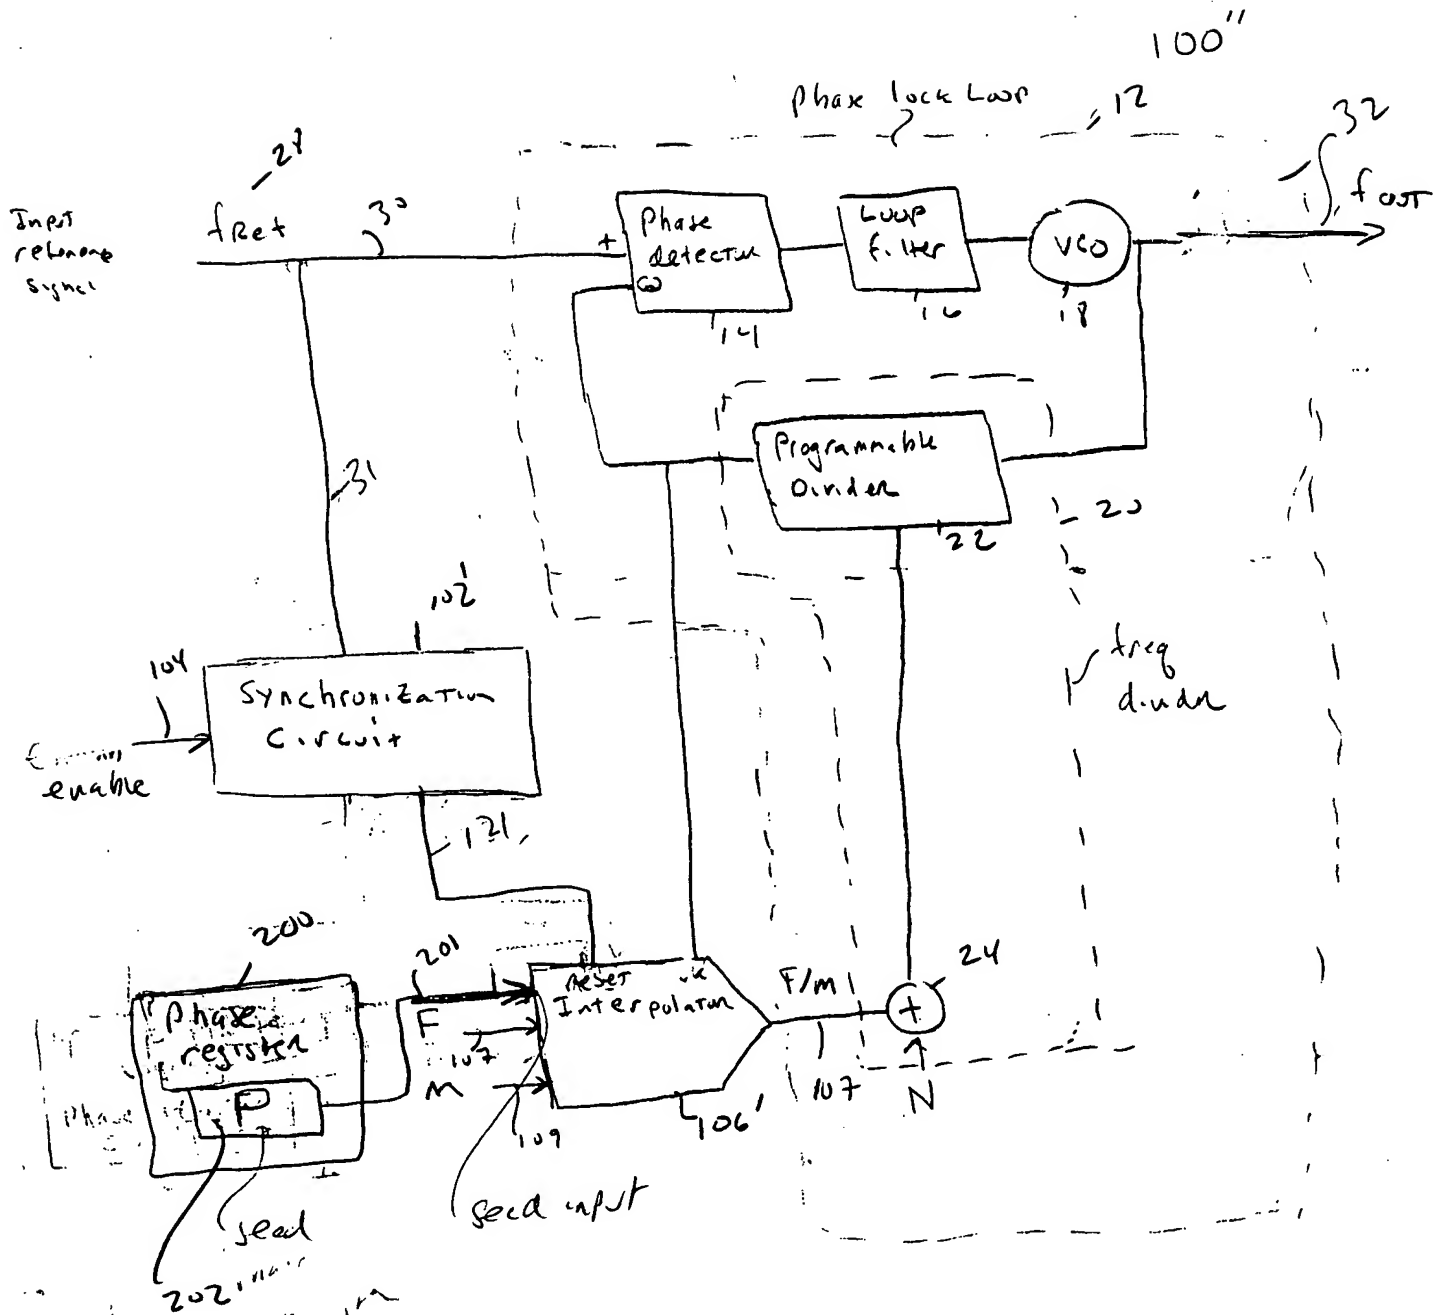 100"
Phase lock Loop
12
32
28
Input
reference
signal
fRef
30
+
Phase
detector
Loop
filter
VCO
fout
14
16
18
31
Programmable
Divider
22
20
102'
freq
divider
104
Synchronization
Circuit
enable
121
200
201
24
Phase
register
P
F
107
M
109
Reset
Interpolator
106'
F/M
107
+
N
Phase
seed
seed input
202